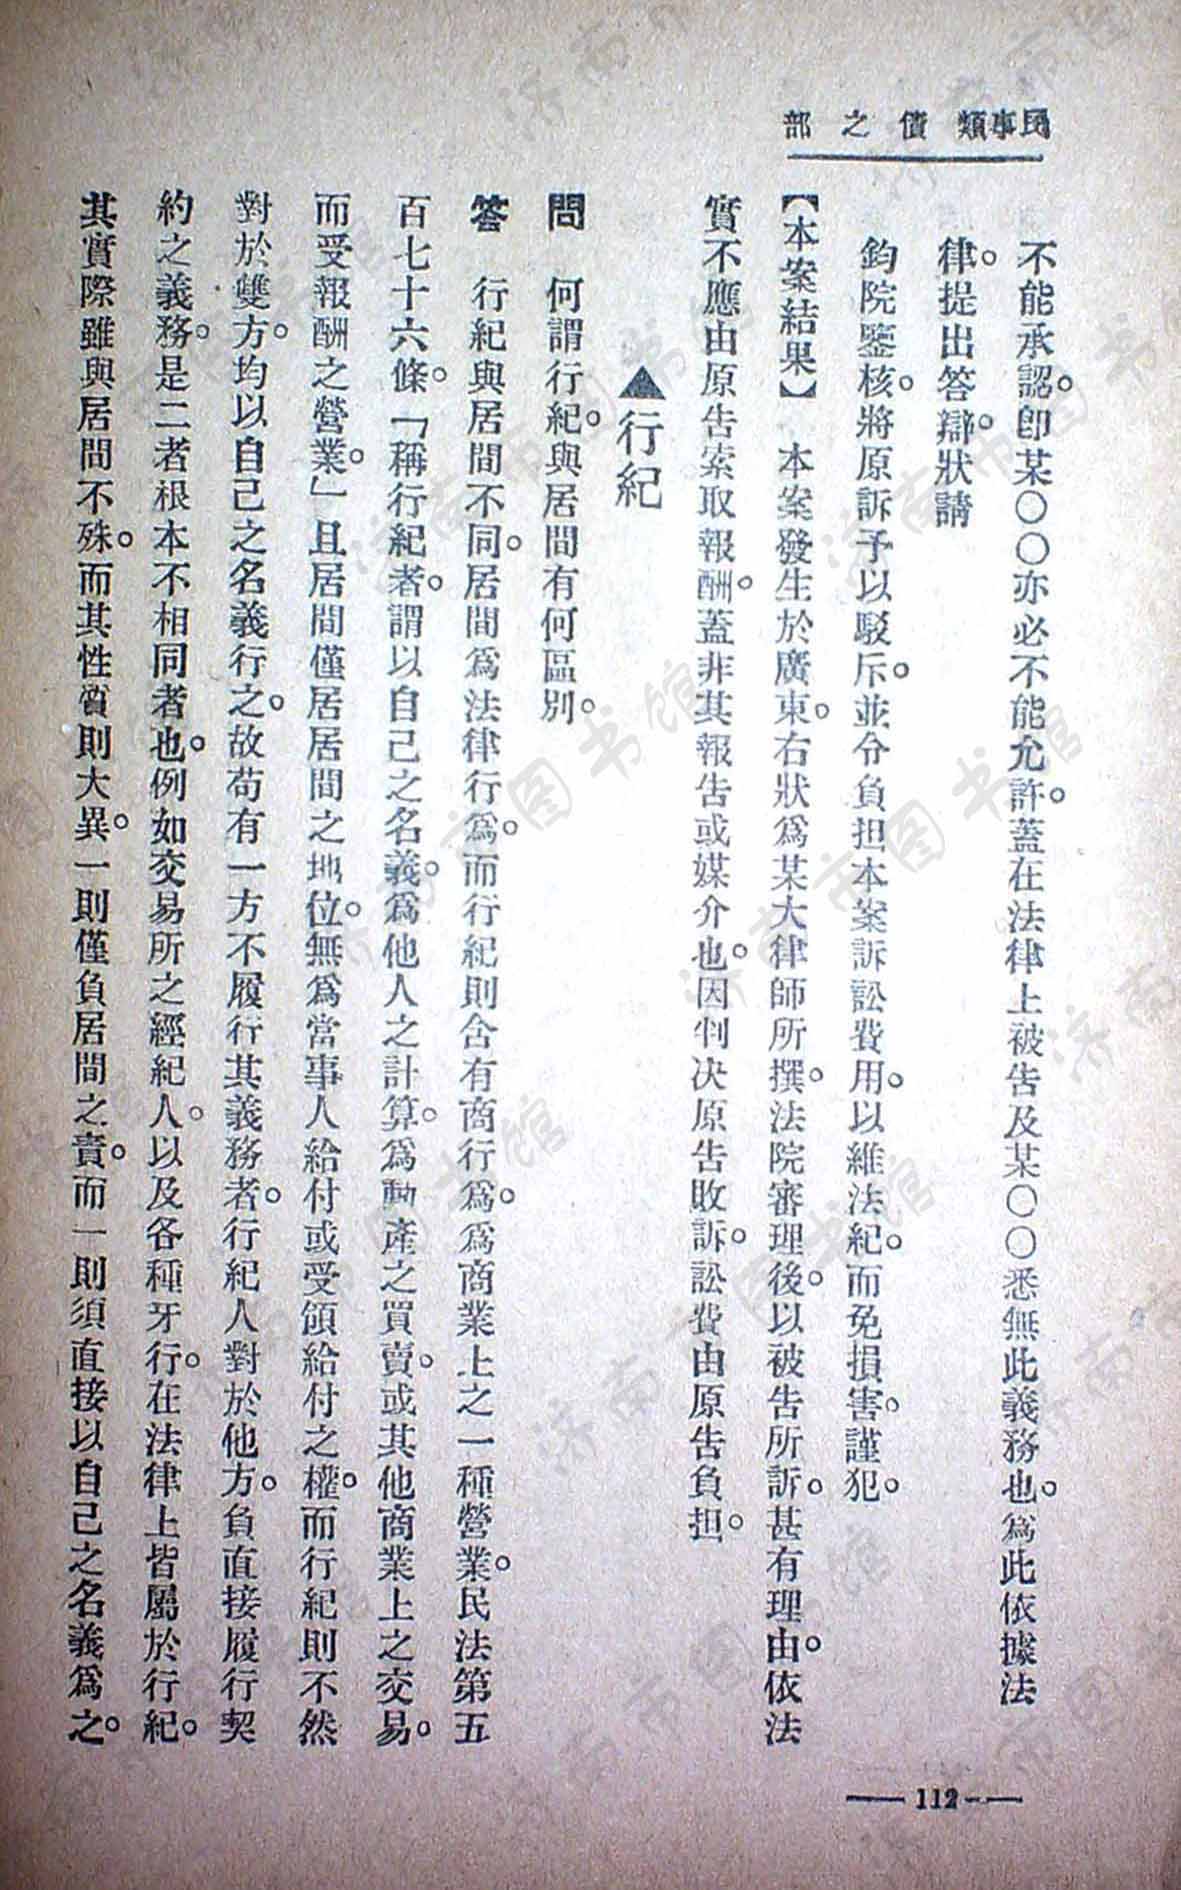 民事類 債之部
不能承認。卽某〇〇亦必不能允許。蓋在法律上被告及某〇〇悉無此義務也。爲此依據法
律。提出答辯狀。請
鈞院鑒核。將原訴予以駁斥。並分負担本案訴訟費用。以維法紀。而免損害。謹犯。
【本案結果】 本案發生於廣東。右狀爲某大律師所撰。法院審理後。以被告所訴。甚有理由。依法
實不應由原告索取報酬。蓋非其報告或媒介也。因判决原告敗訴。訟費由原告負担。
▲行紀
問 何謂行紀。與居間有何區別。
答 行紀與居間不同。居間爲法律行爲。而行紀則含有商行爲。爲商業上之一種營業。民法第五
百七十六條。「稱行紀者。謂以自己之名義。爲他人之計算。爲動產之買賣。或其他商業上之交易。
而受報酬之營業。」且居間僅居居間之地位。無爲當事人給付或受領給付之權。而行紀則不然
對於雙方。均以自己之名義行之。故苟有一方不履行其義務者。行紀人對於他方。負直接履行契
約之義務。是二者根本不相同者也。例如交易所之經紀人。以及各種牙行。在法律上皆屬於行紀。
其實際雖與居間不殊。而其性質則大異。一則僅負居間之責。而一則須直接以自己之名義爲之。
— 112 —
济南市图书馆
济南市图书馆
济南市图书馆
济南市图书馆